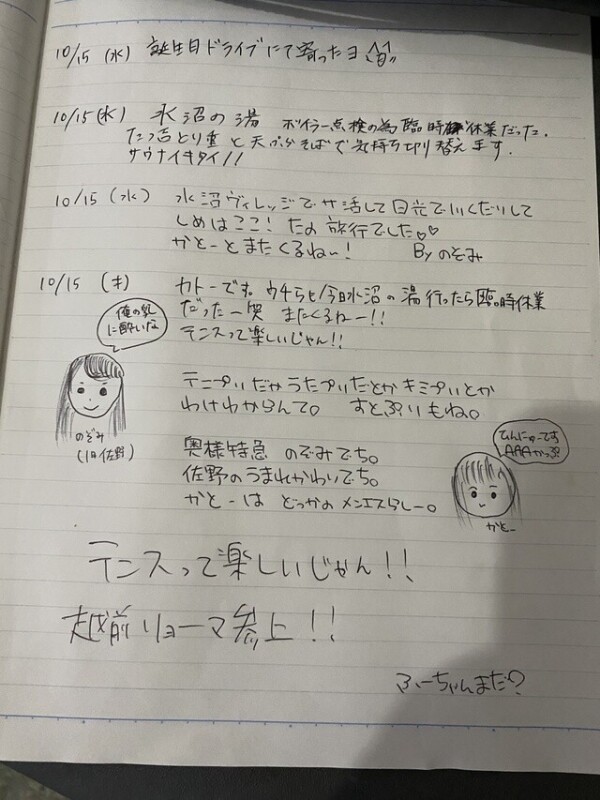 10/15 (水) 誕生日ドライブにて寄ったヨ
10/15(水) 水沼の湯 ボイラー点検の為臨時休業だった.
たつ吉とり重と天ぷらそばで気持ち切り替えます.
サウナイキタイ!!
10/15 (水) 水沼ヴィレッジでサ活して日光でいくだりして
しめはここ! たよ 旅行でした♡♡
かとーとまたくるねー! By のぞみ
10/15 (木) カトーです。ウチらも今日水沼の湯行ったら臨時休業
だったー笑 またくるねー!!
テニスって楽しいじゃん!!
俺の乳
に酔いな
のぞみ
(1日佐野)
テニプリだかうたプリだとかキミプリとか
わけわからんて。 すとぷりもね。
奥様特急 のぞみでち。
佐野のうまれかわりでち。
かとーは どっかのメンエスらしー。
ひんにゅーです
AAAかっぷ
かとー
テニスって楽しいじゃん!!
越前リョーマ参上!!
ふーちゃんまだ?